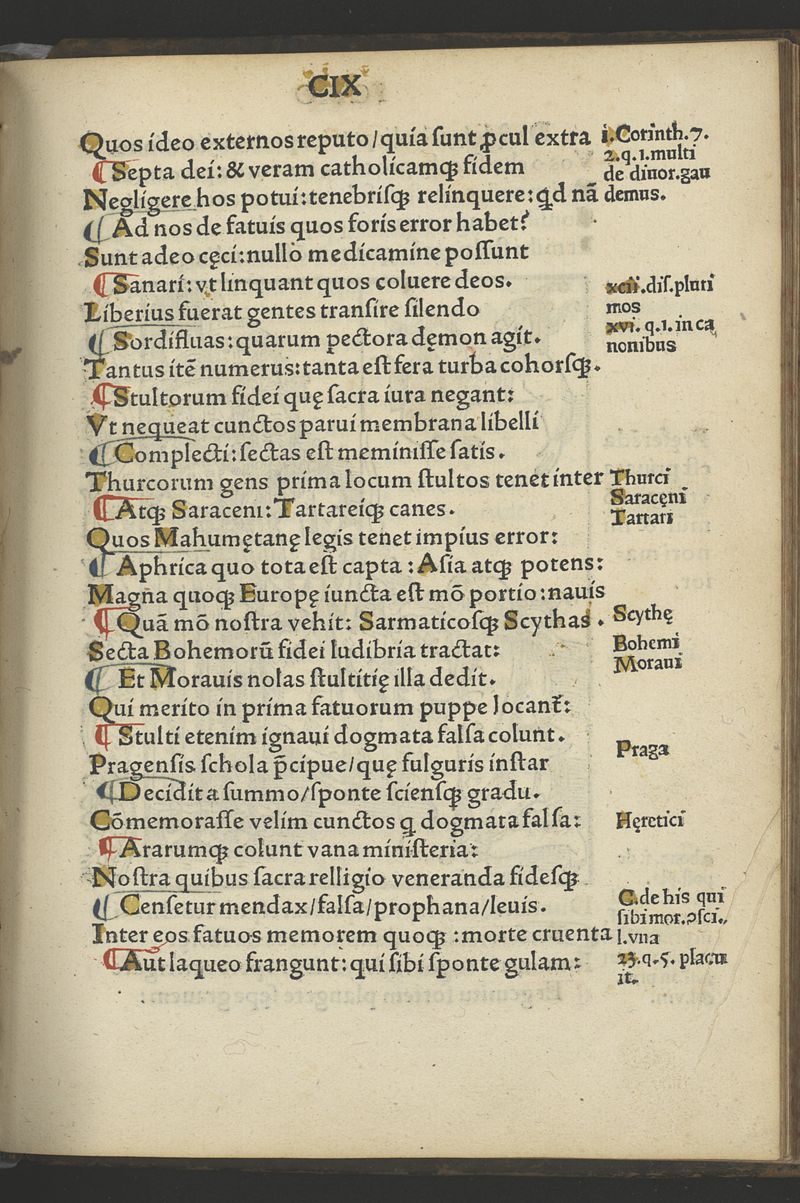 CIX
Quos ideo externos reputo/quia sunt ꝓcul extra
¶Septa dei: & veram catholicamqꝫ fidem
Negligere hos potui: tenebrisqꝫ relinquere: qd nā
¶Ad nos de fatuis quos foris error habet?
Sunt adeo cęci: nullo medicamine possunt
¶Sanari: vt linquant quos coluere deos.
Liberius fuerat gentes transire silendo
¶Sordifluas: quarum pectora dęmon agit.
Tantus itē numerus: tanta est fera turba cohorsqꝫ.
¶Stultorum fidei quę sacra iura negant:
Vt nequeat cunctos parui membrana libelli
¶Complecti: sectas est meminisse satis.
Thurcorum gens prima locum stultos tenet inter
¶Atqꝫ Saraceni: Tartareiqꝫ canes.
Quos Mahumętanę legis tenet impius error:
¶Aphrica quo tota est capta: Asia atqꝫ potens:
Magna quoqꝫ Europę iuncta est mō portio: nauis
¶Quā mō nostra vehit: Sarmaticosqꝫ Scythas.
Secta Bohemorū fidei ludibria tractat:
¶Et Morauis nolas stultitię illa dedit.
Qui merito in prima fatuorum puppe locant᷑:
¶Stulti etenim ignaui dogmata falsa colunt.
Pragensis schola p̄cipue/quę fulguris instar
¶Decidit a summo/sponte sciensqꝫ gradu.
Cōmemorasse velim cunctos q dogmata falsa:
¶Ararumqꝫ colunt vana ministeria:
Nostra quibus sacra relligio veneranda fidesqꝫ
¶Censetur mendax/falsa/prophana/leuis.
Inter eos fatuos memorem quoqꝫ: morte cruenta
¶Aut laqueo frangunt: qui sibi sponte gulam:
i.Corinth.7.
2.q.1.multi
de diuor.gau
demus.
xcii.dis.pluri
mos
xvi.q.1.in ca
nonibus
Thurci
Saracęni
Tartari
Scythę
Bohemi
Moraui
Praga
Hęretici
C.de his qui
sibi mor.ꝯsci.
l.vna
23.q.5.placu
it.